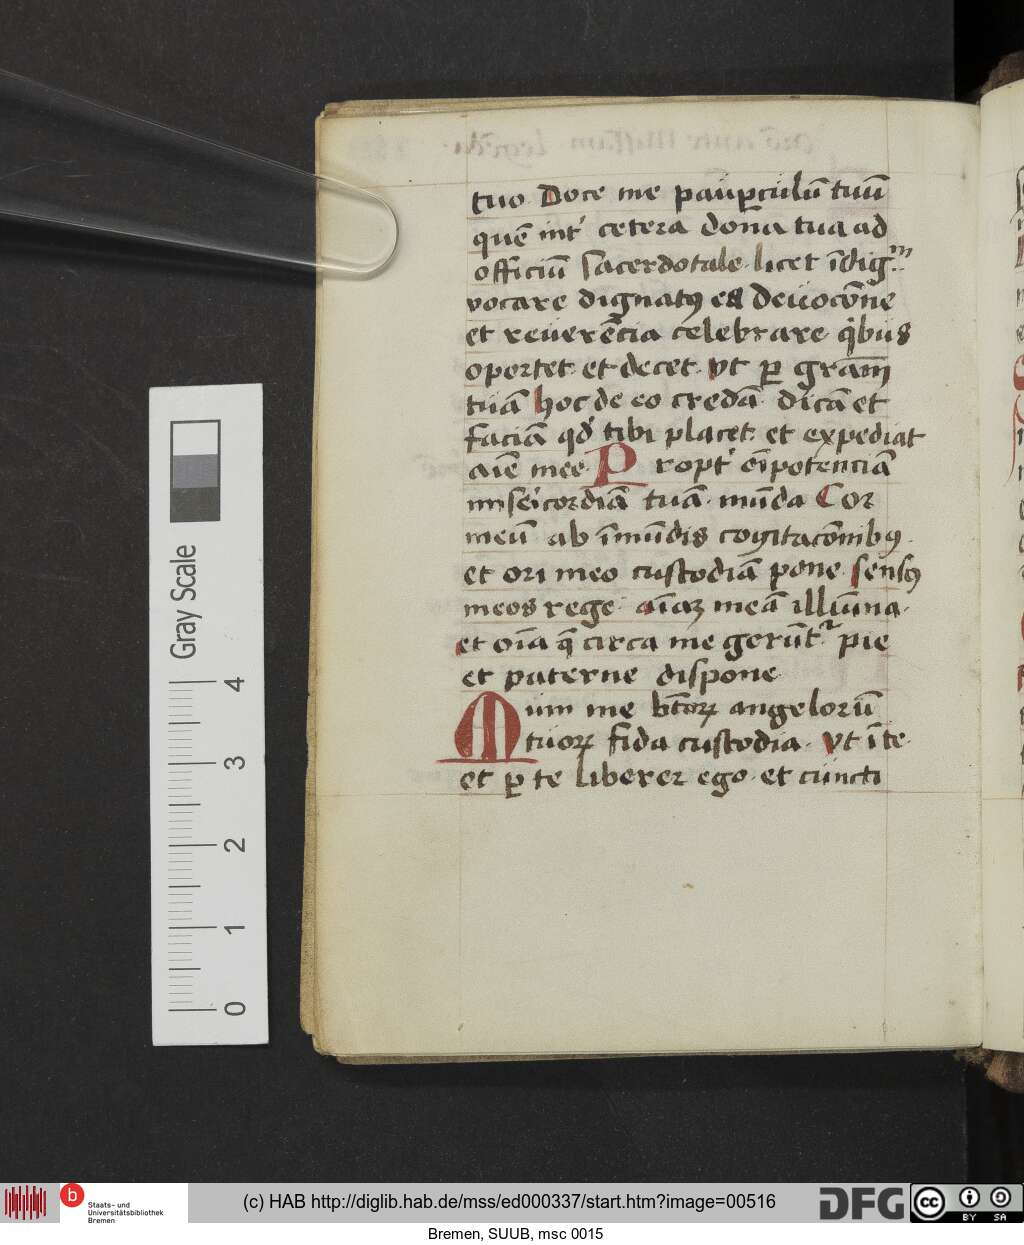 tuo Doce me paup̱culū tuū
quē int᷑ cetera dona tua ad
officiū sacerdotale licet īdig
vocare dignatꝯ es deuocōne
et reuerēcia celebrare qͥbus
oportet et decet vt ꝑ grām
tuā hoc de eo credā dicā et
faciā qd̕ tibi placet et expediat
aīe mee Propt᷑ oīpotenciā
misēicordiā tuā mūda Cor
meū ab īmūdis cogitacōnibꝯ
et ori meo custodiā pone sensꝯ
meos rege aīaꝫ meā illiūna
et oīa q̄ circa me gerūt᷑ pie
et paterne dispone
Muni me btōrꝝ angelorū
tuorꝝ fida custodia vt ī te
et ꝑ te liberer ego et cuncti
Gray Scale
4
3
2
1
0
b
Staats- und
Universitätsbibliothek
Bremen
(c) HAB http://diglib.hab.de/mss/ed000337/start.htm?image=00516
DFG
cc
BY SA
Bremen, SUUB, msc 0015